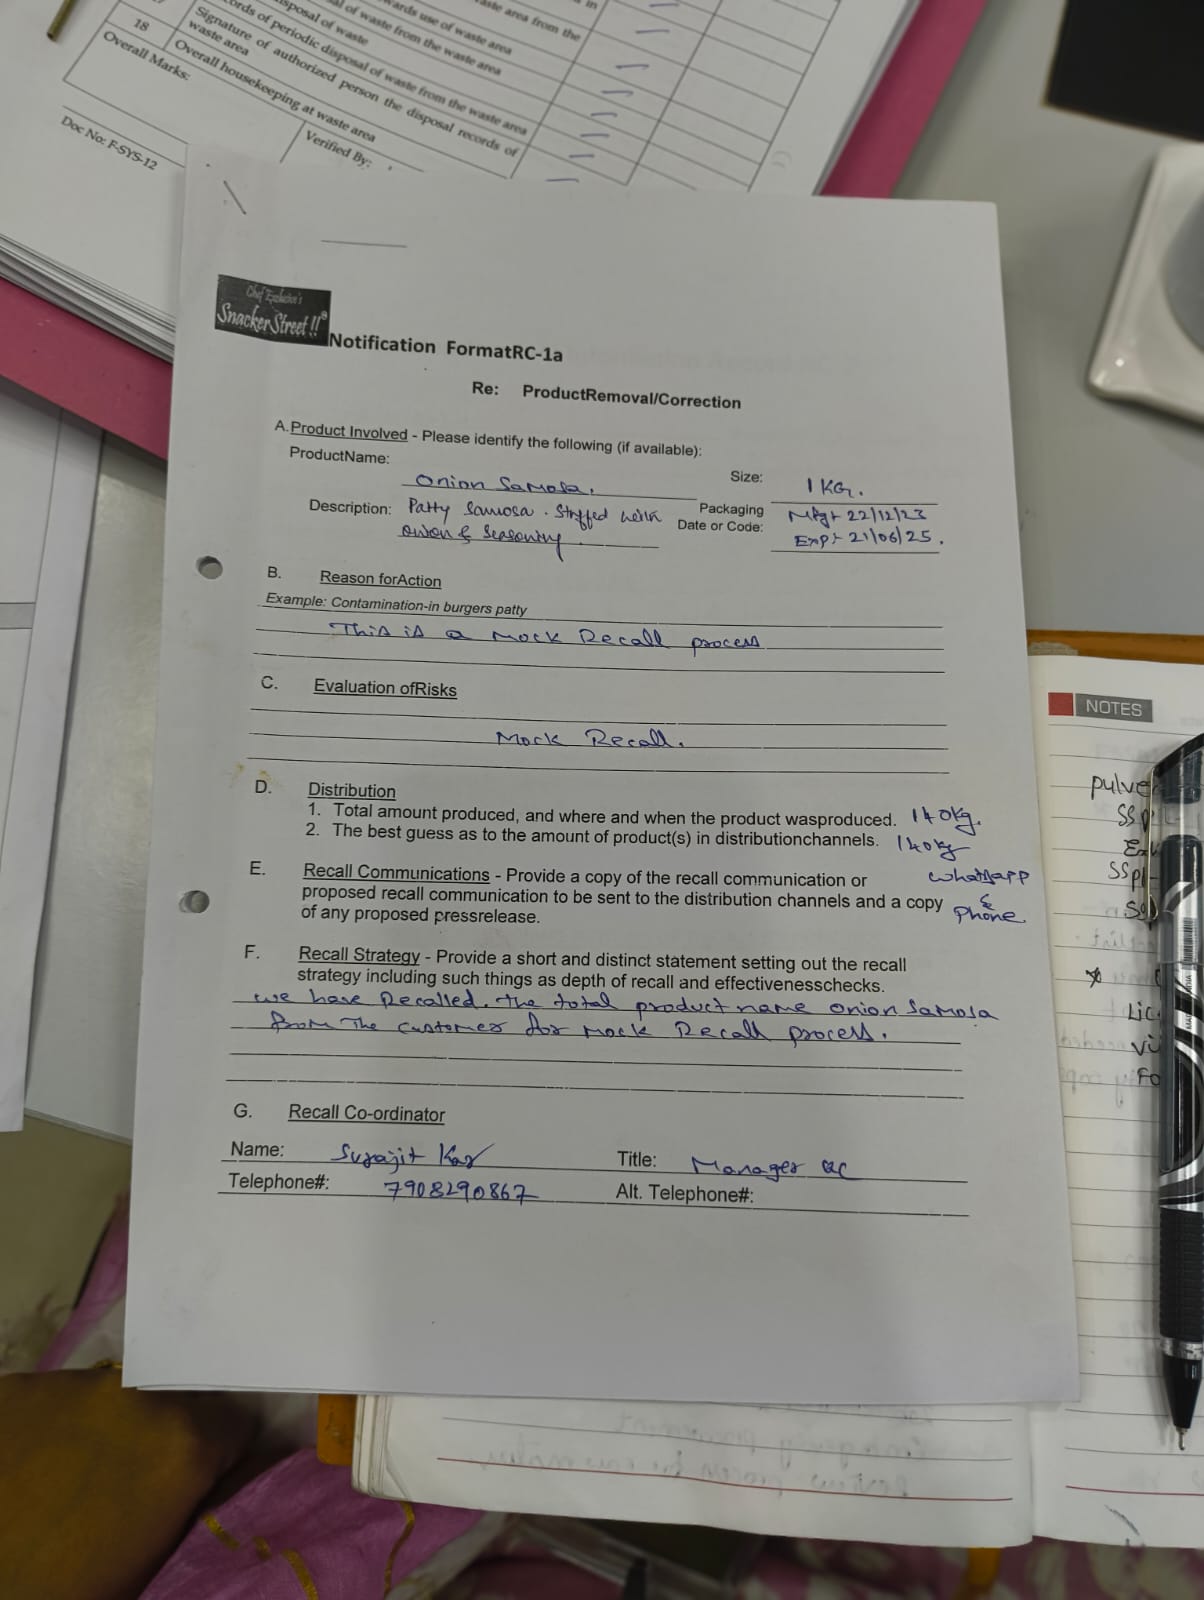 aste area from the
wards use of waste area
sposal of waste
al of waste from the waste area
ords of periodic disposal of waste from the waste area
Signature of authorized person the disposal records of
waste area
18 Overall housekeeping at waste area
Overall Marks:
Verified By:
Doc No: F-SYS-12
Chef Exclusive's
SnackerStreet!!®
Notification FormatRC-1a
Re: ProductRemoval/Correction
A. Product Involved - Please identify the following (if available):
ProductName: Onion Samosa. Size: 1 KG.
Description: Patty Samosa. Stuffed with Packaging Mfg:- 22/12/23
onion & Seasoning Date or Code: Exp:- 21/06/25.
B. Reason forAction
Example: Contamination-in burgers patty
This is a Mock Recall process
C. Evaluation ofRisks
Mock Recall.
D. Distribution
1. Total amount produced, and where and when the product wasproduced. 140kg.
2. The best guess as to the amount of product(s) in distributionchannels. 140kg
E. Recall Communications - Provide a copy of the recall communication or whatsapp
proposed recall communication to be sent to the distribution channels and a copy &
of any proposed pressrelease. Phone
F. Recall Strategy - Provide a short and distinct statement setting out the recall
strategy including such things as depth of recall and effectivenesschecks.
we have Recalled. the total product name onion Samosa
from The customer for mock Recall process.
G. Recall Co-ordinator
Name: Surajit Kar Title: Manager QC
Telephone#: 7908290867 Alt. Telephone#:
NOTES
pulve
SSp
Lic
vi
Fo